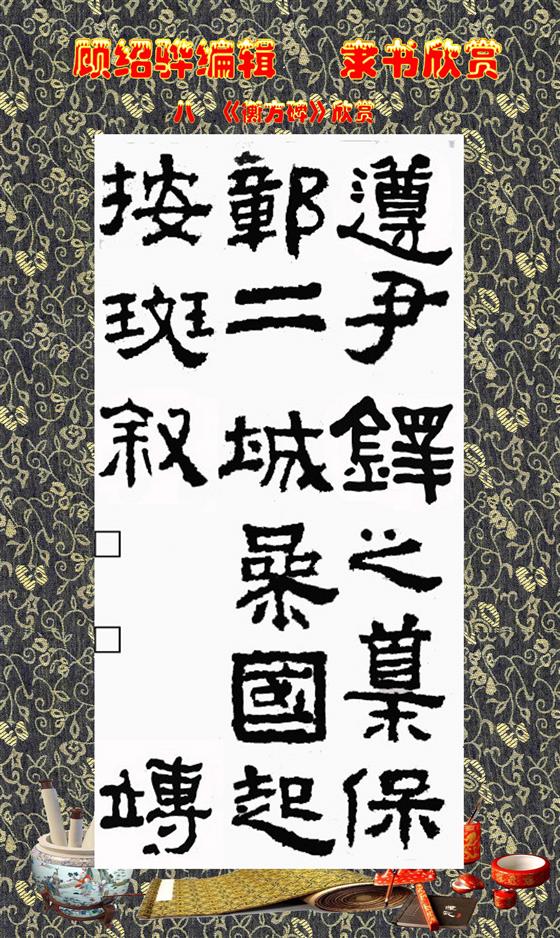 顾绍骅编辑 隶书欣赏
八 《衡方碑》欣赏
遵尹鐸之導保
鄣二城參國起
按斑叙□□竱